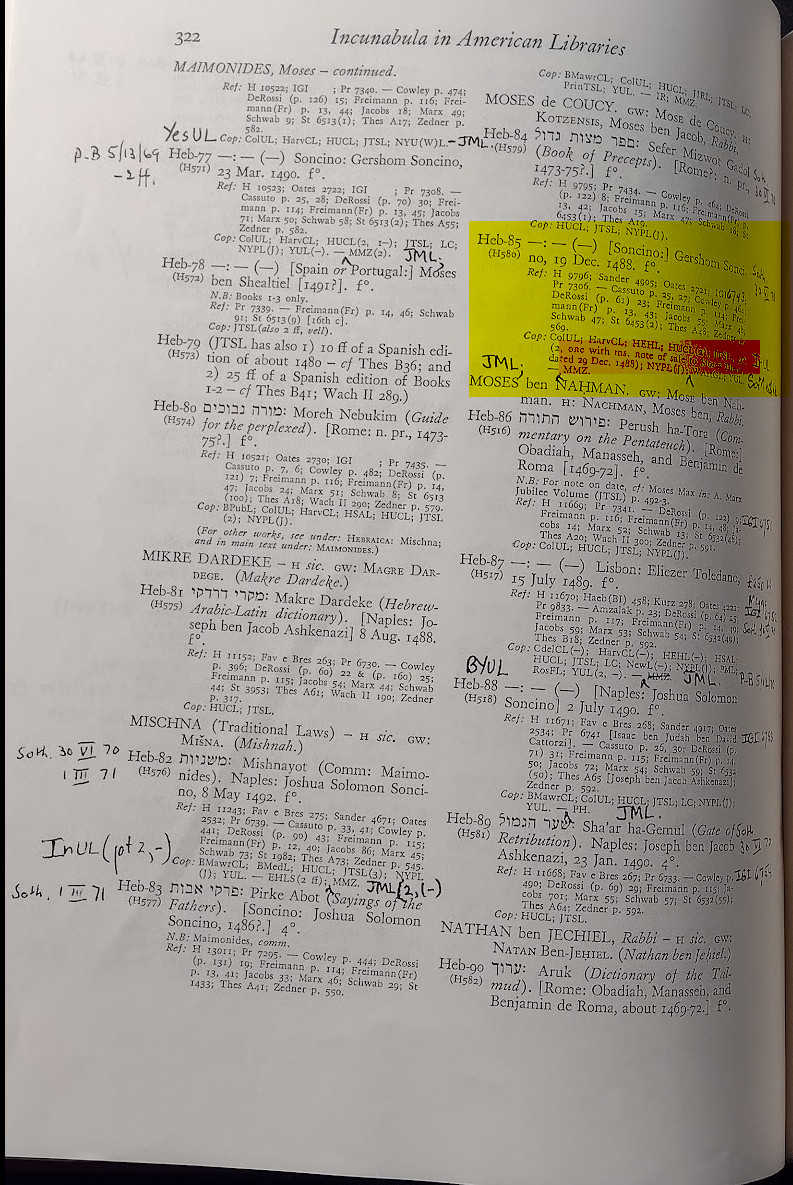 322
Incunabula in American Libraries
MAIMONIDES, Moses – continued.
Ref: H 10522; IGI ; Pr 7340. — Cowley p. 474;
DeRossi (p. 126) 15; Freimann p. 116; Frei-
mann(Fr) p. 13, 44; Jacobs 18; Marx 49;
Schwab 9; St 6513(1); Thes A17; Zedner p.
582.
YesUL Cop: ColUL; HarvCL; HUCL; JTSL; NYU(W)L.–JML.
P-B 5/13/69 Heb-77 —: — (—) Soncino: Gershom Soncino,
–2ff. (H571) 23 Mar. 1490. f°.
Ref: H 10523; Oates 2722; IGI ; Pr 7308. —
Cassuto p. 25, 28; DeRossi (p. 70) 30; Frei-
mann p. 114; Freimann(Fr) p. 13, 45; Jacobs
71; Marx 50; Schwab 58; St 6513(2); Thes A55;
Zedner p. 582.
Cop: ColUL; HarvCL; HUCL(2, 1–); JTSL; LC;
NYPL(J); YUL(–). — MMZ(2). JML.
Heb-78 —: — (—) [Spain or Portugal:] Moses
(H572) ben Shealtiel [1491?]. f°.
N.B: Books 1-3 only.
Ref: Pr 7339. — Freimann(Fr) p. 14, 46; Schwab
91; St 6513(9) [16th c].
Cop: JTSL(also 2 ff, vell).
Heb-79 (JTSL has also 1) 10 ff of a Spanish edi-
(H573) tion of about 1480 – cf Thes B36; and
2) 25 ff of a Spanish edition of Books
1-2 – cf Thes B41; Wach II 289.)
Heb-80 מורה נבוכים: Moreh Nebukim (Guide
(H574) for the perplexed). [Rome: n. pr., 1473-
75?.] f°.
Ref: H 10521; Oates 2730; IGI ; Pr 7435. —
Cassuto p. 7, 6; Cowley p. 482; DeRossi (p.
121) 7; Freimann p. 116; Freimann(Fr) p. 14,
47; Jacobs 24; Marx 51; Schwab 8; St 6513
(100); Thes A18; Wach II 290; Zedner p. 579.
Cop: BPubL; ColUL; HarvCL; HSAL; HUCL; JTSL
(2); NYPL(J).
(For other works, see under: HEBRAICA: Mischna;
and in main text under: MAIMONIDES.)
MIKRE DARDEKE – H sic. GW: MAGRE DAR-
DEGE. (Makre Dardeke.)
Heb-81 מקרי דרדקי: Makre Dardeke (Hebrew-
(H575) Arabic-Latin dictionary). [Naples: Jo-
seph ben Jacob Ashkenazi] 8 Aug. 1488.
f°.
Ref: H 11152; Fav e Bres 263; Pr 6730. — Cowley
p. 396; DeRossi (p. 60) 22 & (p. 160) 25;
Freimann p. 115; Jacobs 54; Marx 44; Schwab
44; St 3953; Thes A61; Wach II 190; Zedner
p. 317.
Cop: HUCL; JTSL.
MISCHNA (Traditional Laws) – H sic. GW:
MIŠNA. (Mishnah.)
Soth. 30 VI 70 Heb-82 משניות: Mishnayot (Comm: Maimo-
1 III 71 (H576) nides). Naples: Joshua Solomon Sonci-
no, 8 May 1492. f°.
Ref: H 11243; Fav e Bres 275; Sander 4671; Oates
2532; Pr 6739. — Cassuto p. 33, 41; Cowley p.
441; DeRossi (p. 90) 43; Freimann p. 115;
Freimann(Fr) p. 12, 40; Jacobs 86; Marx 45;
Schwab 73; St 1982; Thes A73; Zedner p. 545.
InUL (pot 2,-) Cop: BMawrCL; BMedL; HUCL; JTSL(3); NYPL
(J); YUL. — EHLS(2 ff); MMZ. JML(2,(-)
Soth. 1 III 71 Heb-83 פרקי אבות: Pirke Abot (Sayings of the
(H577) Fathers). [Soncino: Joshua Solomon
Soncino, 1486?.] 4°.
N.B: Maimonides, comm.
Ref: H 13011; Pr 7295. — Cowley p. 444; DeRossi
(p. 131) 19; Freimann p. 114; Freimann(Fr)
p. 13, 41; Jacobs 33; Marx 46; Schwab 29; St
1433; Thes A41; Zedner p. 550.
Cop: BMawrCL; ColUL; HUCL; JIRL; JTSL; LC;
PrinTSL; YUL. — IR; MMZ.
MOSES de COUCY. GW: MOSE de Coucy. H:
KOTZENSIS, Moses ben Jacob, Rabbi.
Heb-84 ספר מצות גדול: Sefer Mizwot Gadol
(H579) (Book of Precepts). [Rome?: n. pr.,
1473-75?.] f°.
Ref: H 9795; Pr 7434. — Cowley p. 464; DeRossi
(p. 122) 8; Freimann p. 116; Freimann(Fr) p.
13, 42; Jacobs 15; Marx 47; Schwab 18; S
6453(1); Thes A19.
Cop: HUCL; JTSL; NYPL(J).
Heb-85 —: — (—) [Soncino:] Gershom Sonci-
(H580) no, 19 Dec. 1488. f°.
Ref: H 9796; Sander 4905; Oates 2721; IGI 6743;
Pr 7306. — Cassuto p. 25, 27; Cowley p. 464;
DeRossi (p. 61) 23; Freimann p. 114; Frei-
mann(Fr) p. 13, 43; Jacobs 55; Marx 48;
Schwab 47; St 6453(2); Thes A48; Zedner p.
569.
Cop: ColUL; HarvCL; HEHL; HUCL(2);
(2, one with ms. note of sale
dated 29 Dec. 1488); NYPL(J); YUL.
JML; — MMZ.
MOSES ben NAḤMAN. GW: MOSE ben Neh-
man. H: NACHMAN, Moses ben, Rabbi.
Heb-86 פירוש התורה: Perush ha-Tora (Com-
(H516) mentary on the Pentateuch). [Rome:]
Obadiah, Manasseh, and Benjamin de
Roma [1469-72]. f°.
N.B: For note on date, cf: Moses Marx in: A. Marx
Jubilee Volume (JTSL) p. 492-3.
Ref: H 11669; Pr 7341. — DeRossi (p. 122) 9;
Freimann p. 116; Freimann(Fr) p. 14, 48; Ja-
cobs 14; Marx 52; Schwab 13; St 6532(48);
Thes A20; Wach II 300; Zedner p. 591.
Cop: ColUL; HUCL; JTSL; NYPL(J).
Heb-87 —: — (—) Lisbon: Eliezer Toledano,
(H517) 15 July 1489. f°.
Ref: H 11670; Haeb(BI) 458; Kurz 278; Oates 4222;
Pr 9833. — Amzalak p. 23; DeRossi (p. 64) 25;
Freimann p. 117; Freimann(Fr) p. 14, 49;
Jacobs 59; Marx 53; Schwab 54; St 6532(49);
Thes B18; Zedner p. 592.
Cop: CdelCL(–); HarvCL(–); HEHL(–); HSAL;
HUCL; JTSL; LC; NewL(–); NYPL(J); PML;
BYUL RosFL; YUL(2, –). — MMZ. JML.
Heb-88 —: — (—) [Naples: Joshua Solomon
(H518) Soncino] 2 July 1490. f°.
Ref: H 11671; Fav e Bres 268; Sander 4917; Oates
2534; Pr 6741 [Isaac ben Judah ben David
Cattorzi]. — Cassuto p. 26, 30; DeRossi (p.
71) 31; Freimann p. 115; Freimann(Fr) p. 14,
50; Jacobs 72; Marx 54; Schwab 59; St 6532
(50); Thes A65 [Joseph ben Jacob Ashkenazi];
Zedner p. 592.
Cop: BMawrCL; ColUL; HUCL; JTSL; LC; NYPL(J);
YUL. — PH. JML.
Heb-89 שער הגמול: Sha'ar ha-Gemul (Gate of
(H581) Retribution). Naples: Joseph ben Jacob
Ashkenazi, 23 Jan. 1490. 4°.
Ref: H 11668; Fav e Bres 267; Pr 6733. — Cowley p.
490; DeRossi (p. 69) 29; Freimann p. 115; Ja-
cobs 701; Marx 55; Schwab 57; St 6532(55);
Thes A64; Zedner p. 592.
Cop: HUCL; JTSL.
NATHAN ben JECHIEL, Rabbi – H sic. GW:
NATAN Ben-JEḤIEL. (Nathan ben Jeḥiel.)
Heb-90 ערוך: Aruk (Dictionary of the Tal-
(H582) mud). [Rome: Obadiah, Manasseh, and
Benjamin de Roma, about 1469-72.] f°.